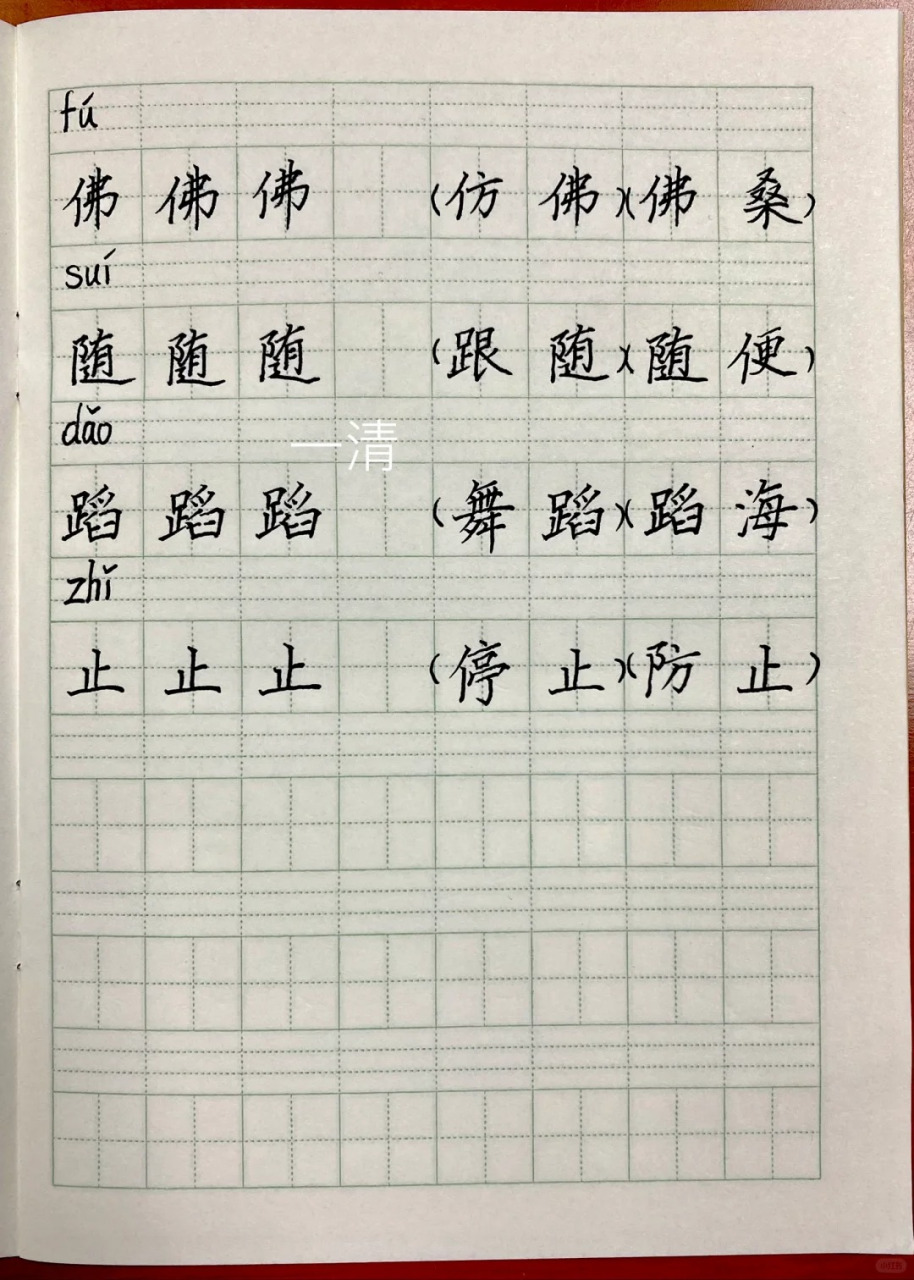 fú
佛 佛 佛 (仿 佛)(佛 桑)
suí
随 随 随 (跟 随)(随 便)
dǎo
一清
蹈 蹈 蹈 (舞 蹈)(蹈 海)
zhǐ
止 止 止 (停 止)(防 止)
小红书